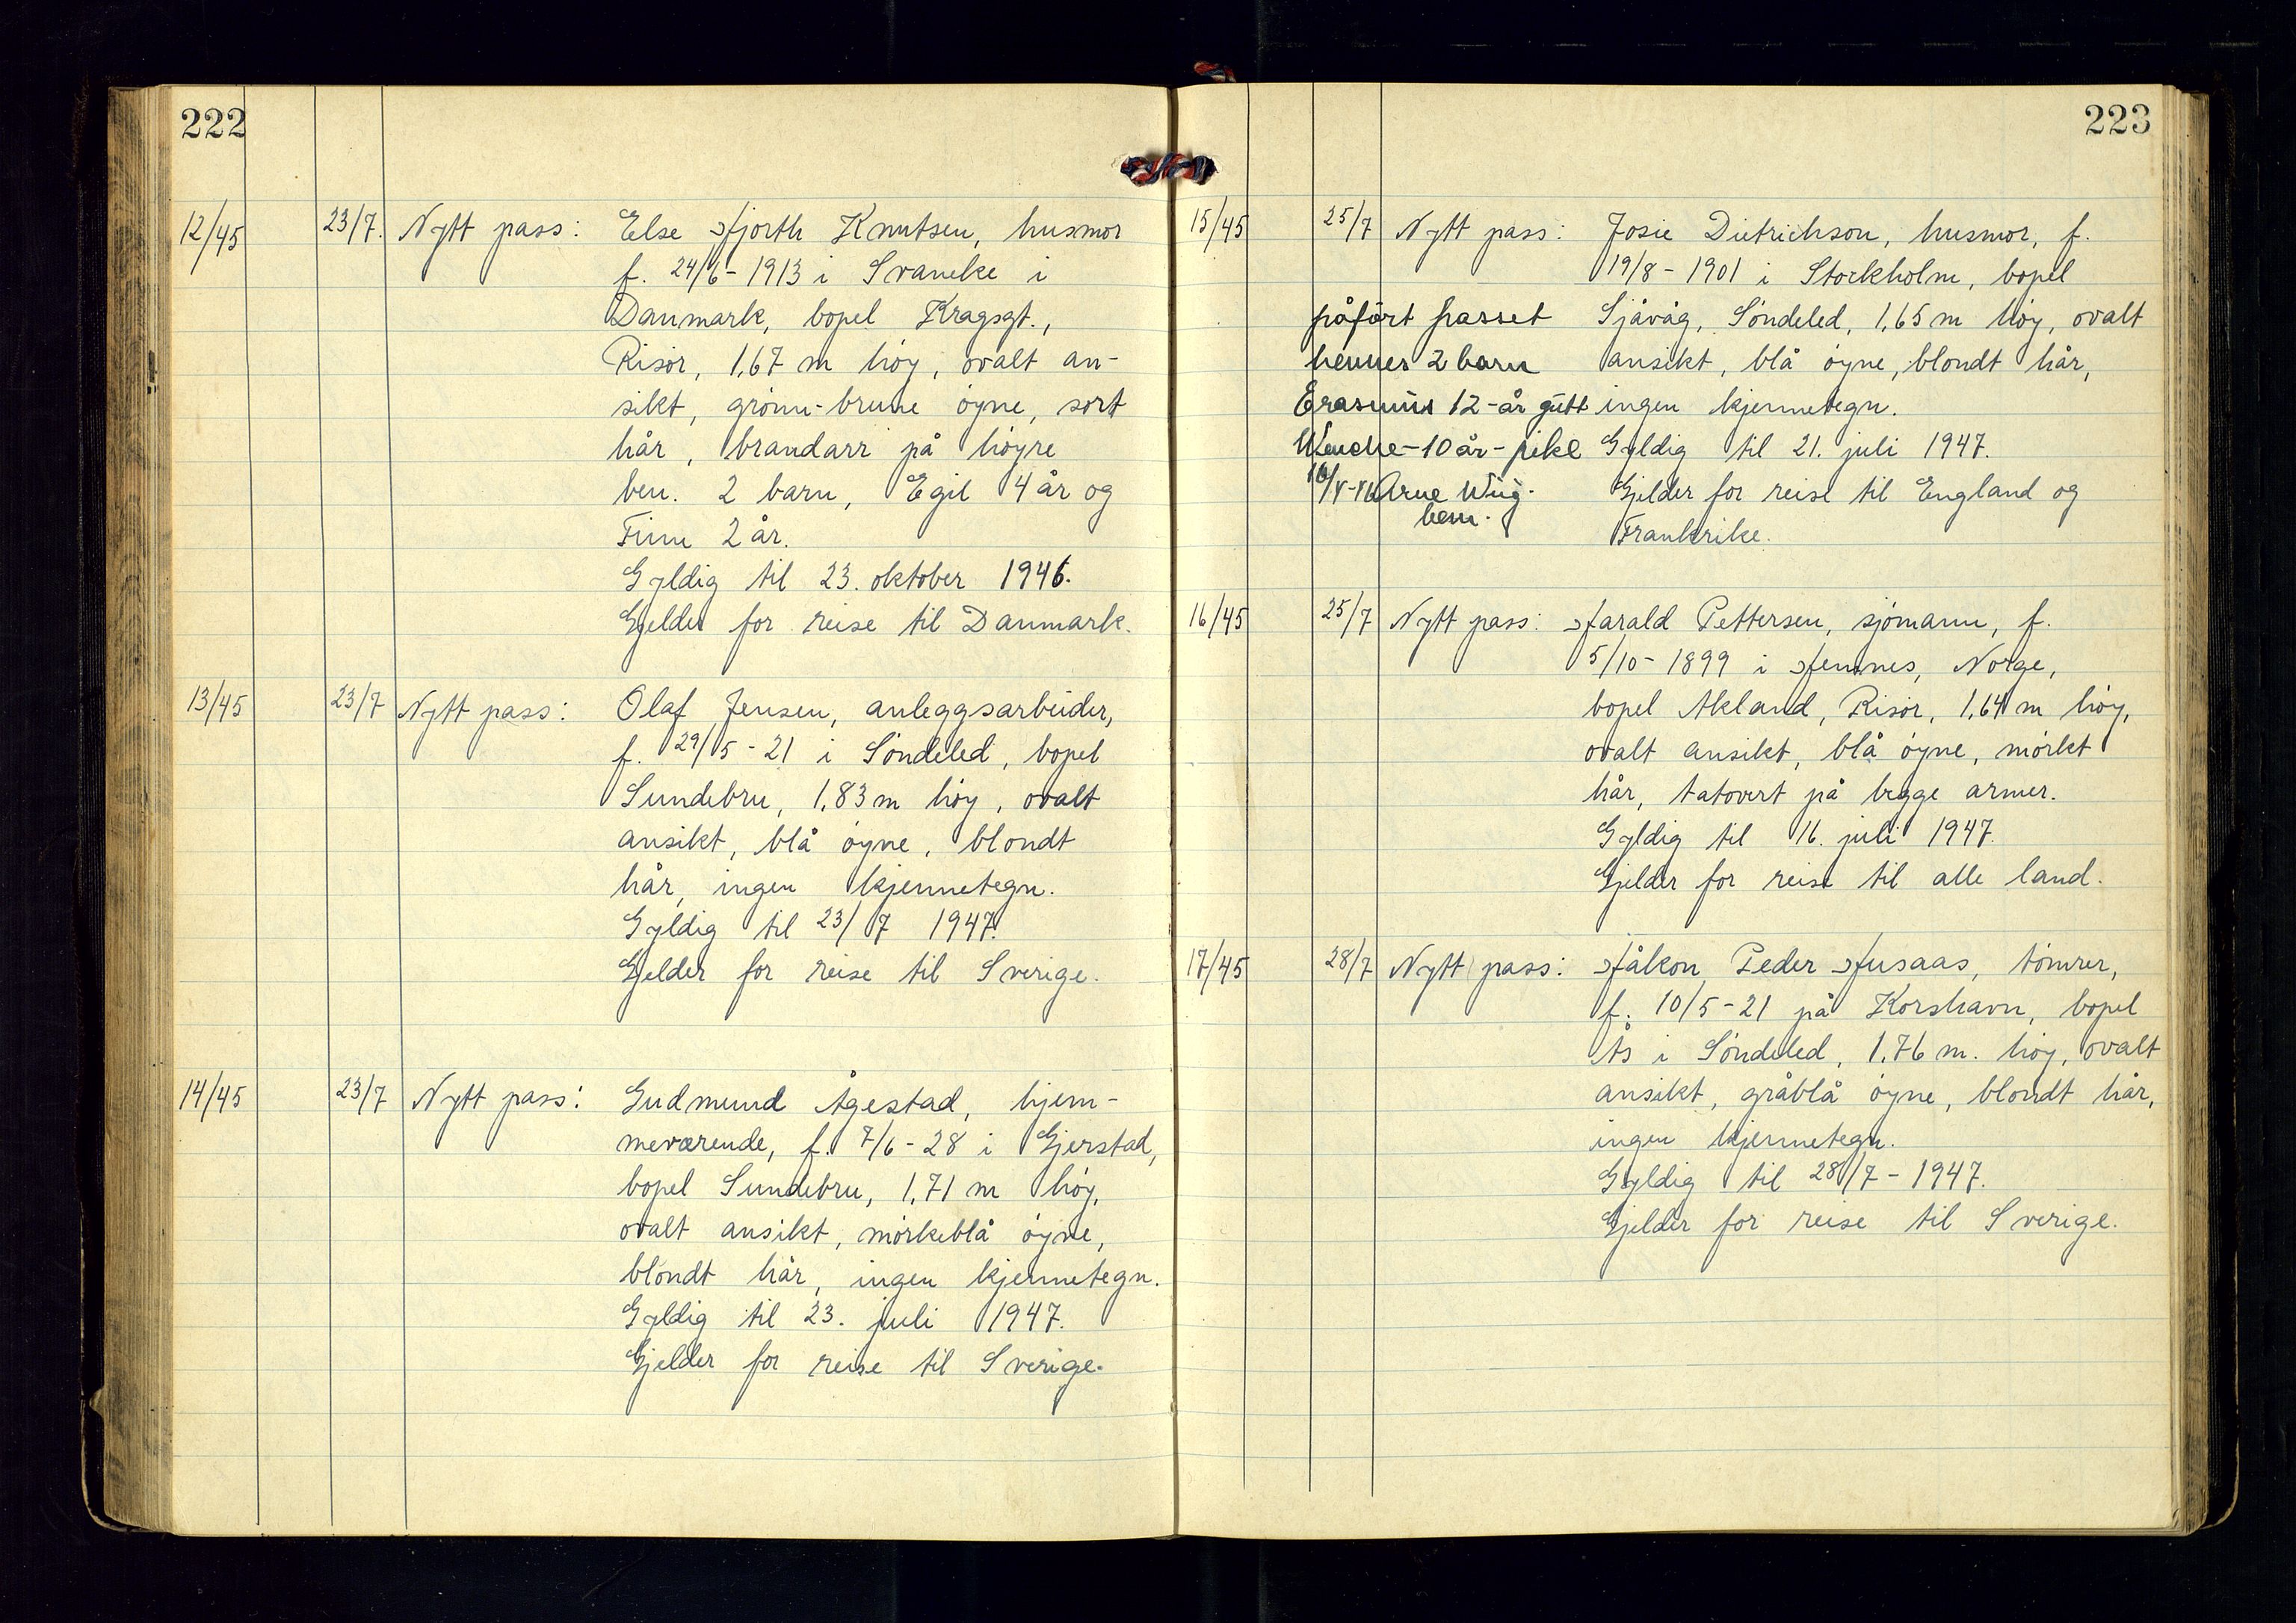 222
12/45 23/7. Nytt pass: Else Hjorth Knutsen, husmor
f. 24/6-1913 i Svaneke i
Danmark, bopel Kragsgt.,
Risör, 1,67 m höy, ovalt an-
sikt, grönn-brune öyne, sort
hår, brandarr på höyre
ben. 2 barn, Egil 4 år og
Finn 2 år.
Gyldig til 23. oktober 1946.
Gjelder for reise til Danmark.
13/45 23/7 Nytt pass: Olaf Jensen, anleggsarbeider,
f. 29/5-21 i Söndeled, bopel
Sundebru, 1,83 m höy, ovalt
ansikt, blå öyne, blondt
hår, ingen kjennetegn.
Gyldig til 23/7 1947.
Gjelder for reise til Sverige.
14/45 23/7 Nytt pass: Gudmund Ågestad, hjem-
meværende, f. 7/6-28 i Gjerstad,
bopel Sundebru, 1,71 m höy,
ovalt ansikt, mörkeblå öyne,
blondt hår, ingen kjennetegn.
Gyldig til 23. juli 1947.
Gjelder for reise til Sverige.
223
15/45 25/7 Nytt pass: Josie Dietrichson, husmor, f.
19/8-1901 i Stockholm, bopel
påfört passet Sjåvåg, Söndeled, 1,65 m höy, ovalt
hennes 2 barn ansikt, blå öyne, blondt hår,
Erasmus 12-år gutt ingen kjennetegn.
Wenche-10 år-pike Gyldig til 21. juli 1947.
Arne Wiig. Gjelder for reise til England og
Frankrike.
16/45 25/7 Nytt pass: Harald Pettersen, sjömann, f.
5/10-1899 i Hennes, Norge,
bopel Akland, Risör, 1,64 m höy,
ovalt ansikt, blå öyne, mörkt
hår, tatovert på begge armer.
Gyldig til 16. juli 1947.
Gjelder for reise til alle land.
17/45 28/7 Nytt pass: Håkon Peder Husaas, tömrer,
f. 10/5-21 på Korshavn, bopel
Ås i Söndeled, 1,76 m. höy, ovalt
ansikt, gråblå öyne, blondt hår,
ingen kjennetegn.
Gyldig til 28/7-1947.
Gjelder for reise til Sverige.